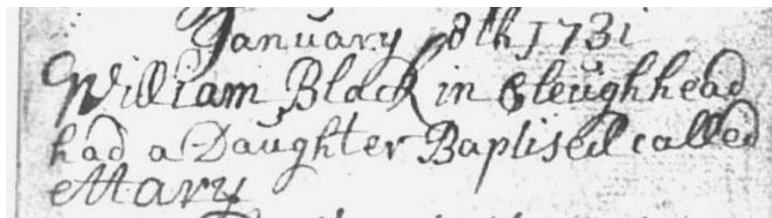 January 8th 1731
William Black in Cleughhead
had a Daughter Baptised called
Mary